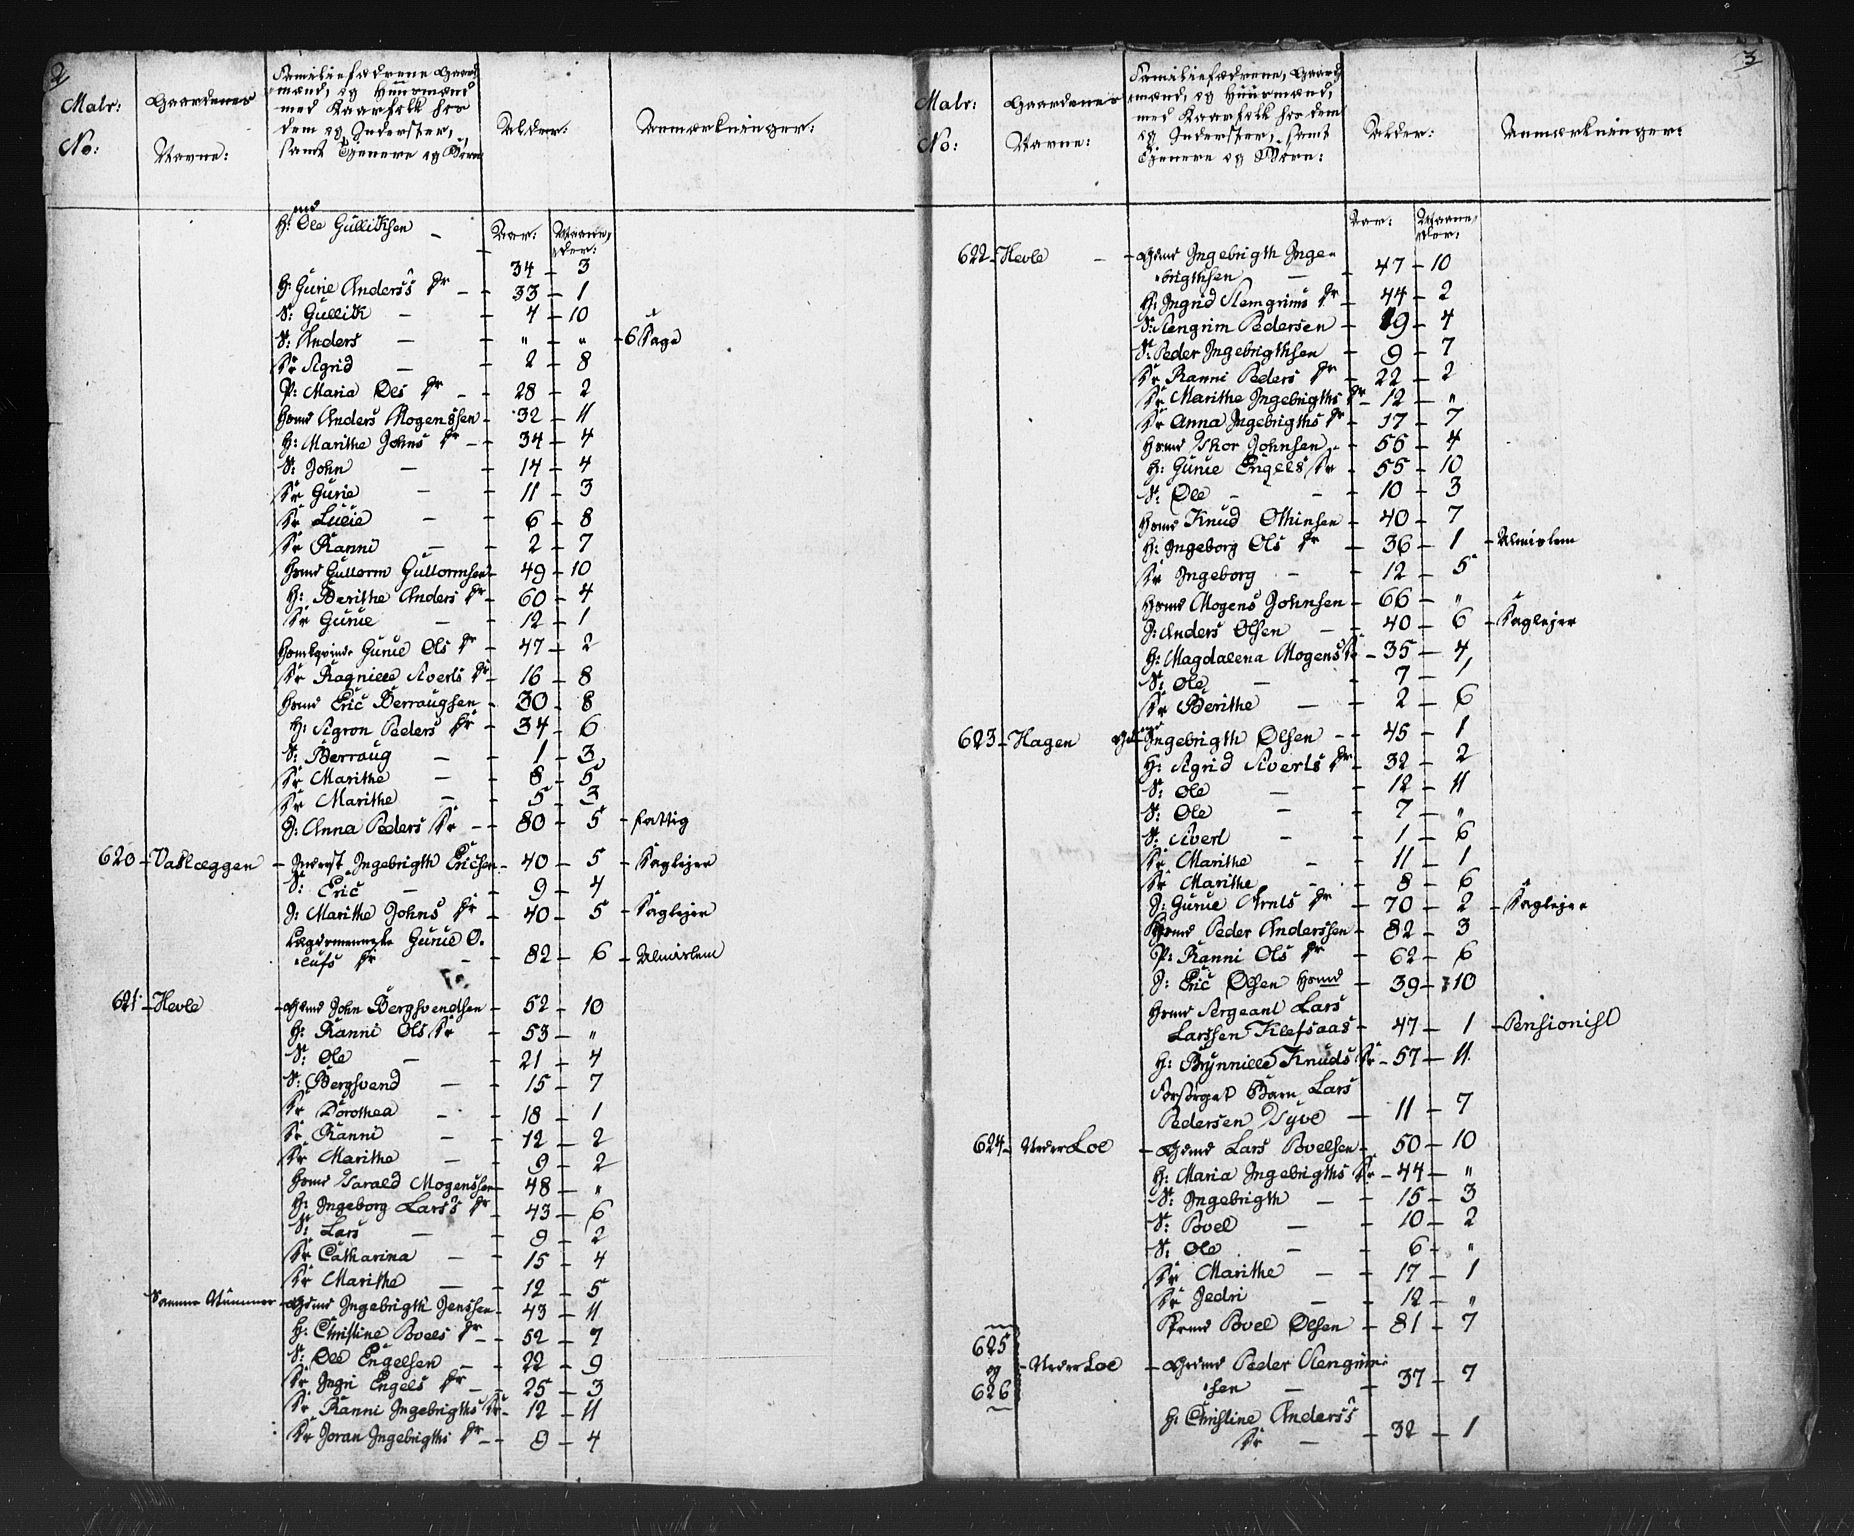 2
Matr: No:
Gaardenes Navne:
Familiefædrene, Gaard
mænd, og Huusmænd
med Kaarfolk hos
dem og Inderster,
samt Tjenere og Børn
Alder:
Anmærkninger:
Aar: Maane, der:
H:md Ole Gullichsen – 34 – 3
H: Gurie Anderss Dr – 33 – 1
S: Gullich – 4 – 10
S: Anders – " – " – 6 Dage
Dr Sigrid – 2 – 8
P: Maria Ols Dr – 28 – 2
Hsmd Anders Mogenssen – 32 – 11
H: Marithe Johns Dr – 34 – 4
S: John – 14 – 4
Dr Gurie – 11 – 3
Dr Lucie – 6 – 8
Dr Ranni – 2 – 7
Hsmd Guttorm Guttormsen – 49 – 10
H: Berithe Anders Dr – 60 – 4
Dr Gurue – 12 – 1
Huuskqvinde Gurue Ols Dr – 47 – 2
Dr Ragnille Siverts Dr – 16 – 8
Hsmd Eric Berraugsen – 30 – 8
H: Sigron Peders Dr – 34 – 6
S: Berraug – 1 – 3
Dr Marithe – 8 – 5
Dr Marithe – 5 – 3
J: Anna Peders Dr – 80 – 5 – fattig
620 – Vaslæggen – Inderst Ingebrigth Ericsen – 40 – 5 – Daglejer
S: Eric – 9 – 4
J: Marithe Johns Dr – 40 – 5 – Daglejer
Lægdemenneske Gurue O-
lufs Dr – 82 – 6 – Almislem
621 – Hevle – Gdmd John Bergsvendsen – 52 – 10
H: Ranni Ols Dr – 53 – "
S: Ole – 21 – 4
S: Bergsvend – 15 – 7
Dr Dorothea – 18 – 1
Dr Ranni – 12 – 2
Dr Marithe – 9 – 2
Hsmd Harald Mogenssen – 48 – "
H: Ingeborg Larss Dr – 43 – 6
S: Lars – 9 – 2
Dr Catharina – 15 – 4
Dr Marithe – 12 – 5
Samme Nummer – Gdmd Ingebrigth Jenssen – 43 – 11
H: Christine Povels Dr – 52 – 7
S: Ole Engelsen – 22 – 9
Dr Ingri Engels Dr – 25 – 3
Dr Ranni Ingebrigths Dr – 12 – 11
Dr Joran Ingebrigths Dr – 9 – 4
3
Matr: No:
Gaardenes Navne:
Familiefædrene, Gaard
mænd, og Huusmænd,
med Kaarfolk hos dem
og Inderster, samt
Tjenere og Børn:
Alder:
Anmærkninger:
Aar: Maane, der:
622 – Hevle – Gdmd Ingebrigth Inge-
brigthsen – 47 – 10
H: Ingrid Stemgrims Dr – 44 – 2
S: Stengrim Pedersen – 19 – 4
S: Peder Ingebrigthsen – 9 – 7
Dr Ranni Peders Dr – 22 – 2
Dr Marithe Ingebrigths Dr – 12 – "
Dr Anna Ingebrigths Dr – 17 – 7
Hsmd Thor Johnsen – 56 – 4
H: Gurue Engels Dr – 55 – 10
S: Ole – 10 – 3
Hsmd Knud Othinsen – 40 – 7
H: Ingeborg Ols Dr – 36 – 1 – Almislem
Dr Ingeborg – 12 – 5
Hsmd Mogens Johnsen – 66 – "
J: Anders Olsen – 40 – 6 – Daglejer
H: Magdalena Mogens Dr – 35 – 4
S: Ole – 7 – 1
Dr Berithe – 2 – 6
623 – Hagen Gdmd Ingebrigth Olsen – 45 – 1
H: Sigrid Siverts Dr – 32 – 2
S: Ole – 12 – 11
S: Ole – 7 – "
S: Sivert – 1 – 6
Dr Marithe – 11 – 1
Dr Marithe – 8 – 6
J: Gurue Arnts Dr – 70 – 2 – Daglejer
Hsmd Peder Anderssen – 82 – 3
P: Ranni Ols Dr – 62 – 6
J: Eric Olsen Hsmd – 39 – 10
Hsmd Sergeant Lars
Larssen Klefsaas – 47 – 1 – Pensionist
H: Brynnille Knuds Dr – 57 – 11
Forsørget Barn Lars
Pedersen Tyve – 11 – 7
624 – Neder Loe – Gdmd Lars Povelsen – 50 – 10
H: Maria Ingebrigths Dr – 44 – "
S: Ingebrigth – 15 – 3
S: Povel – 10 – 2
S: Ole – 6 – "
Dr Marithe – 17 – 1
Dr Jedri – 12 – "
Povel Olsen – 81 – 7
625 og 626 – Neder Loe – Gdmd Peder Stengrim-
sen – 37 – 7
H: Christine Anderss
Dr – 32 – 1